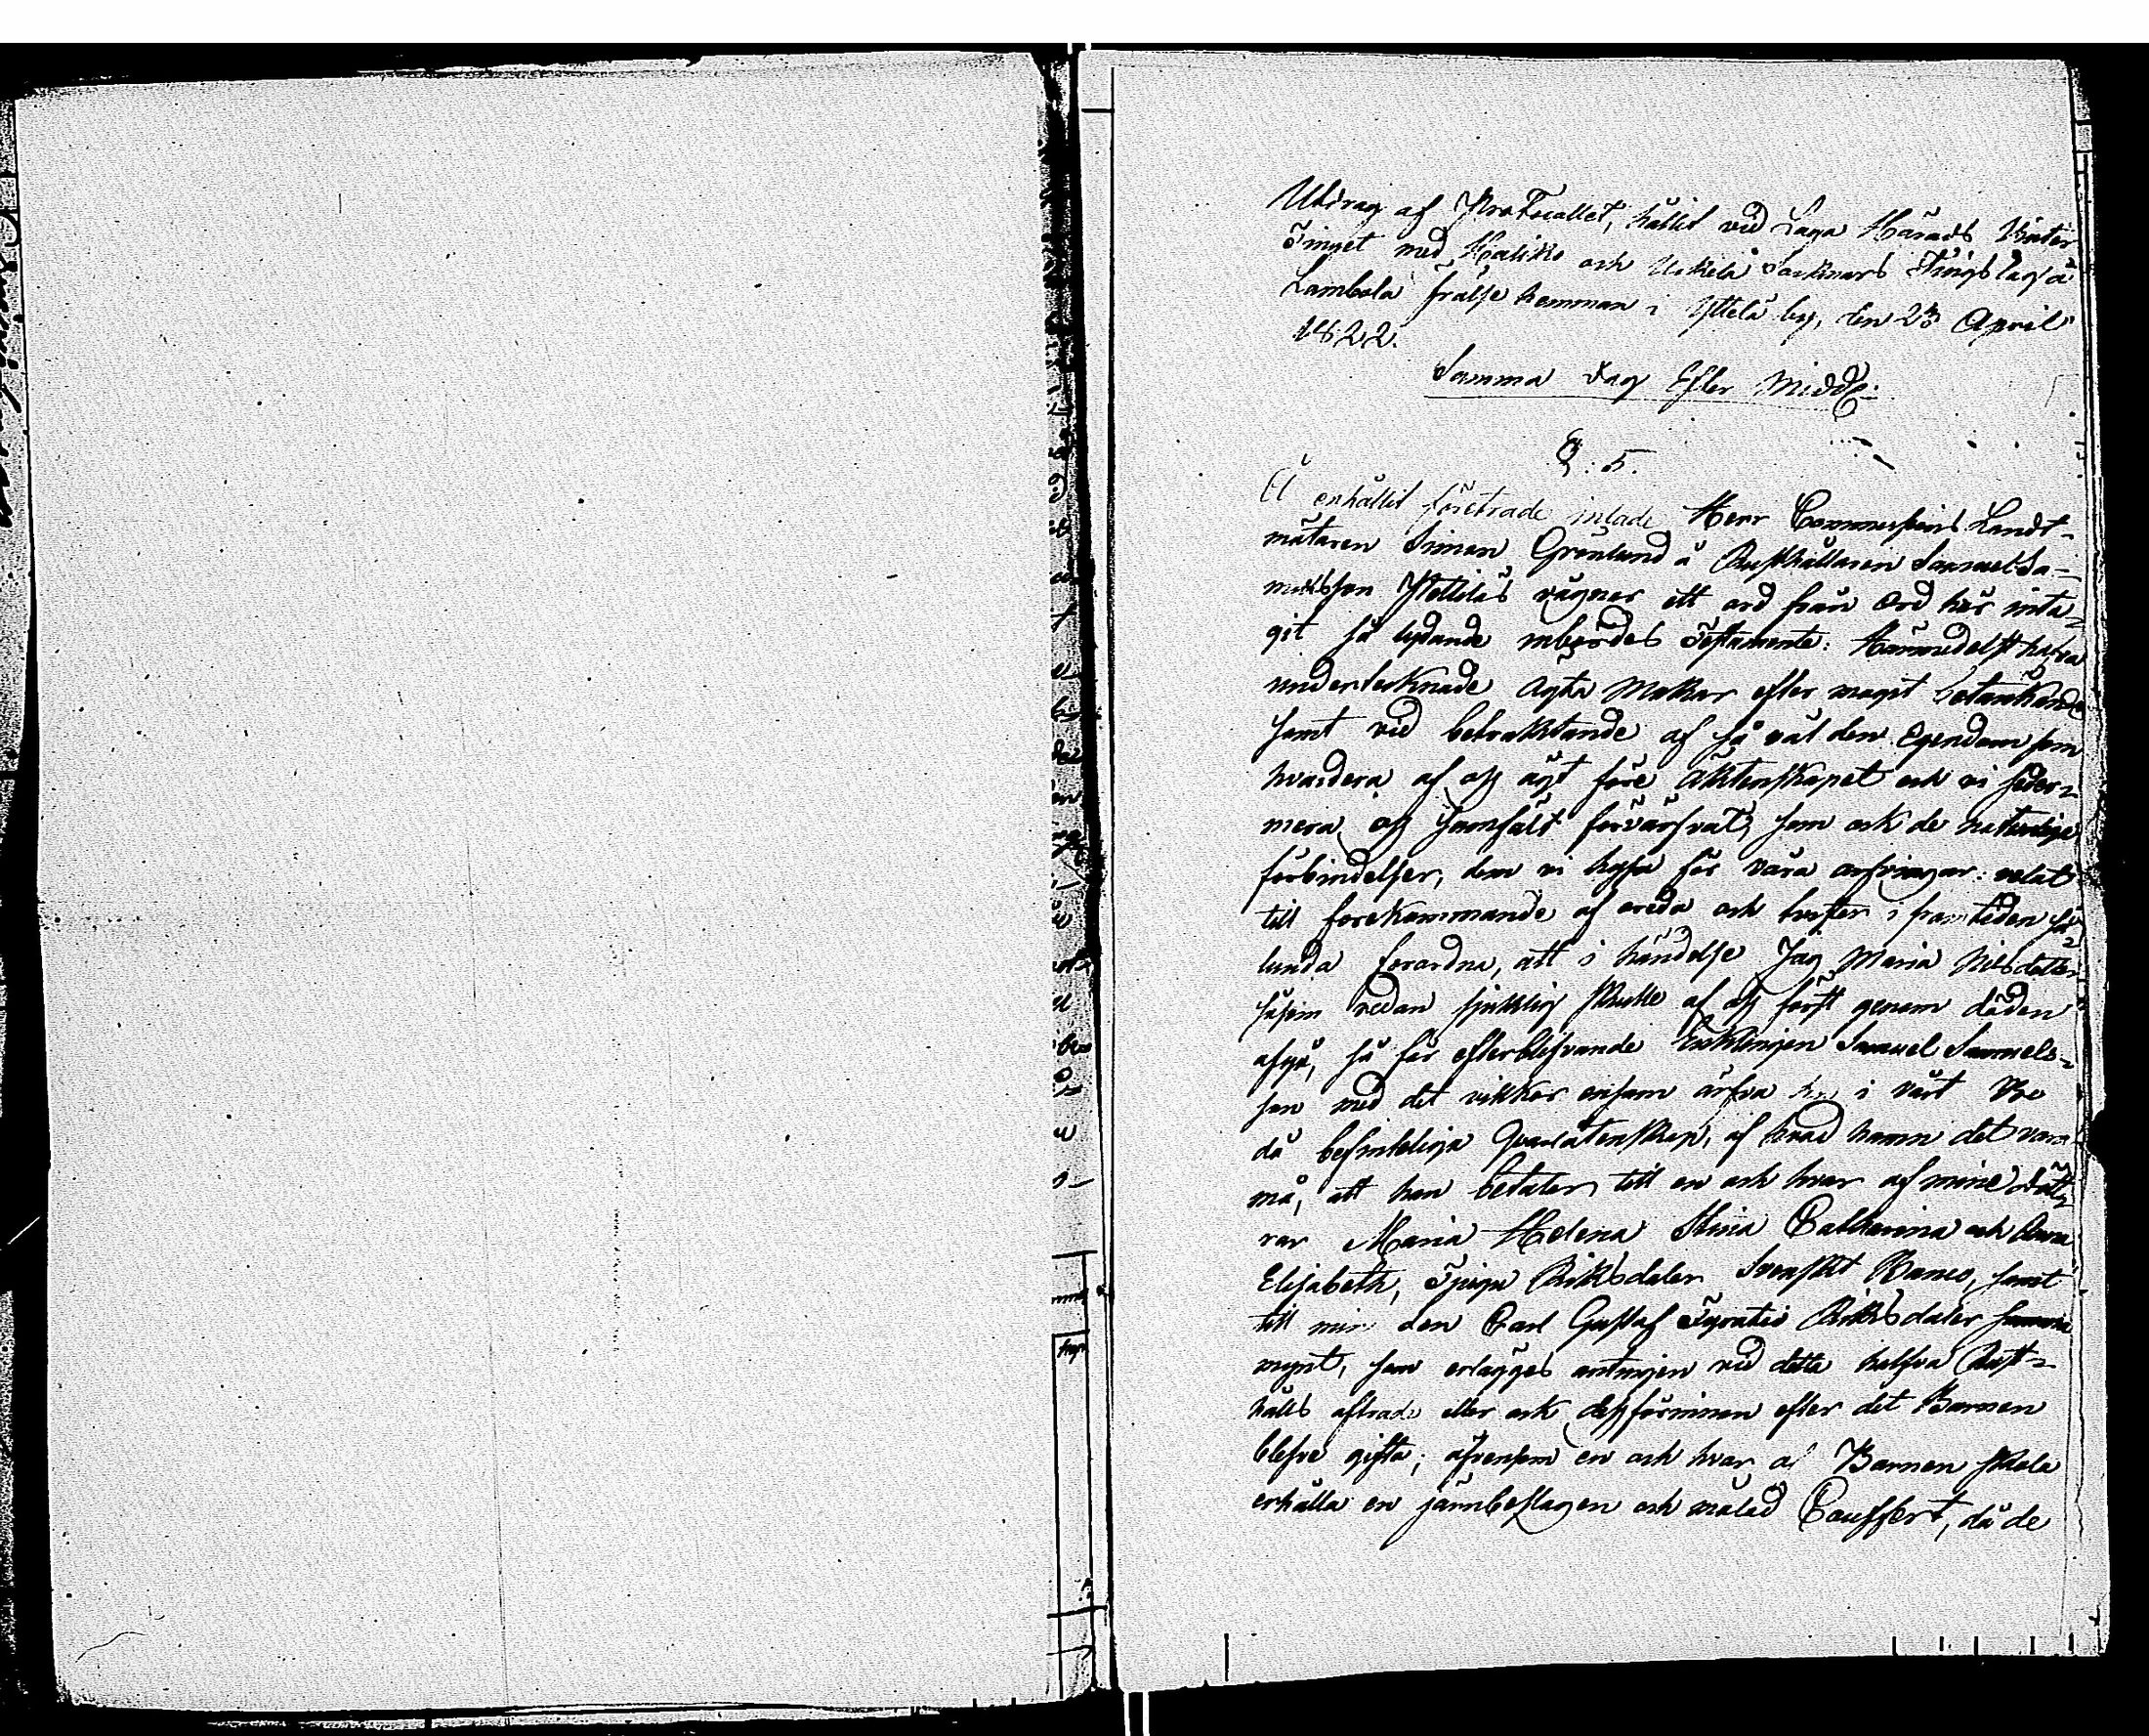 Utdrag af Protocollet, hållit vid Laga Härads Vinter
Tinget med Haliko och Uskela Soknars Tingslag å
Lambola frälse hemman i Yttelä by, den 23 April
1822.
Samma dag Efter Midd:
§: 5.
Å enhållit företräde inlade Herr Commissions Landt-
mätaren Simon Grönlund å Rusthållaren Samuel Sa-
muelsson vägnar ett ord från ord här inta-
git så lydande inbördes Testamente: Härmedelst hafva
undertecknade Ägta Makar efter moget betänkande
samt vid betraktande af så väl den Egendom som
hvardera af oss ägt före Äktenskapet och vi seder-
mera oss samfält förvärfvat, som ock de naturliga
förbindelser, dem vi hysa för våra arfvingar: velat
till förekommande af oreda och tvister i framtiden så-
lunda förordna, att i händelse Jag Maria Nilsdotter
såsom redan sjuklig skulle af oss först genom döden
afgå, så får efterblifvande Enklingen Samuel Samuels-
son med det vilkor ensam ärfva i vårt Bo
då befinteliga Qvarlåtenskap, af hvad namn det vara
må, att han betalar till en och hvar af mine dött-
rar Maria Helena Stina Catharina och Anna
Elisabeth, Tjugu Riksdaler Svenskt Banco, samt
till min son Carl Gustaf Tyratio Riksdaler samma
mynt, som erlägges antingen vid detta halfva Rust-
hålls afträde eller ock dessförinnan efter det Barnen
blefve gifta; äfvensom en och hvar af Barnen skola
erhålla en järnbeslagen och målad Couffert, då de